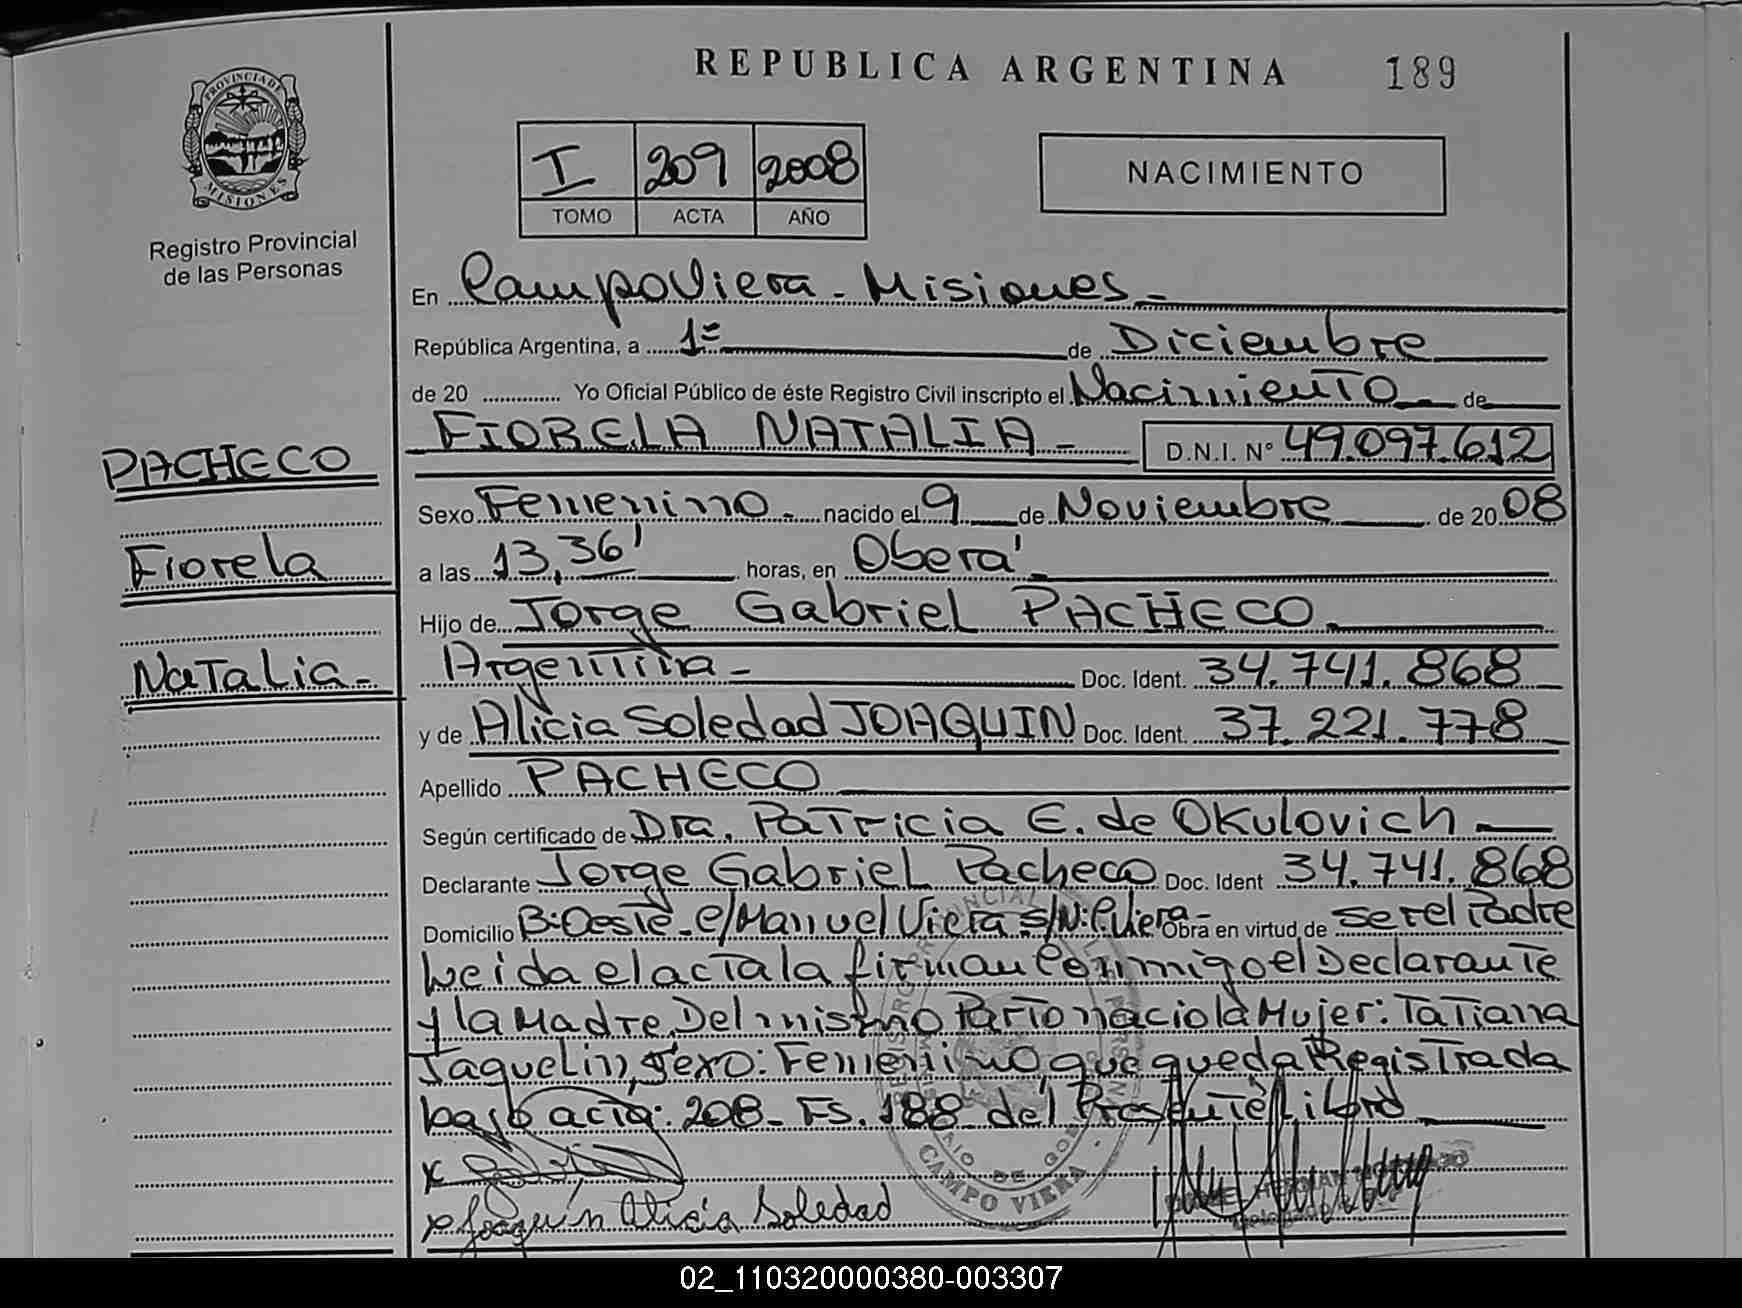 REPUBLICA ARGENTINA 189
PROVINCIA DE MISIONES
Registro Provincial
de las Personas
I 209 2008
TOMO ACTA AÑO
NACIMIENTO
En Campo Viera - Misiones -
República Argentina, a 1º de Diciembre
de 20 ............ Yo Oficial Público de éste Registro Civil inscripto el Nacimiento de
FIORELA NATALIA - D.N.I. Nº 49.097.612
PACHECO
Fiorela
Natalia -
Sexo Femenino - nacido el 9 de Noviembre de 2008
a las 13,36' horas, en Oberá -
Hijo de Jorge Gabriel PACHECO.
Argentina - Doc. Ident. 34.741.868
y de Alicia Soledad JOAQUIN Doc. Ident. 37.221.778
Apellido PACHECO
Según certificado de Dra. Patricia E. de Okulovich
Declarante Jorge Gabriel Pacheco Doc. Ident 34.741.868
Domicilio B: Oeste - C/ Manuel Viera S/N: C. Viera - Obra en virtud de ser el Padre
Leida el acta la firman Conmigo el Declarante
y la Madre. Del mismo Parto nacio la Mujer: Tatiana
Jaquelin, Sexo: Femenino, que queda Registrada
bajo acta: 208 - Fs. 188 del Presente Libro
x
x Joaquín Alicia Soledad
CAMPO VIERA
Delegado
02_110320000380-003307